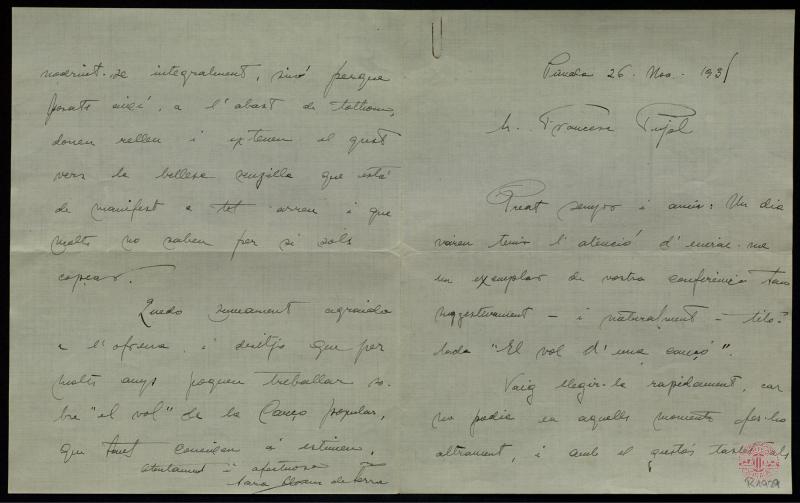 Pineda 26 Nov. 1931
Sr. Francesc Pujol
Preat senyor i amic: Un dia
varen tenir l'atenció d'enviar-me
un exemplar de vostra conferència tan
suggestivament — i naturalment — tito-
lada "El vol d'una cançó".
Vaig llegir-la rapidament, car
no podia en aquells moments fer-ho
altrament, i amb el gustós
nodrint-se integralment, sinó perque
posats aixó, a l'abast de tothom,
donen relleu i extenen el gust
vers la bellesa senzilla que está
de manifest a tot arreu i que
molts no saben per si sols
copsar.
Quedo sumament agraida
a l'ofrena i desitjo que per
molts anys poguem treballar so-
bre "el vol" de la Canço popular,
que tant coneixen i estimen,
atentament i afectuosa
Sara Llorens de Serra
R.1929